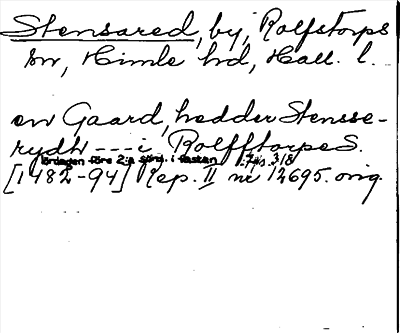 Stensared, by, Rolfstorps
sn, Himle hd, Hall. l.
en Gaard, hedder Stensse-
rydh --- i Rolfftorpe S.
lördagen före 2:a sönd. i fastan
[1482-94] Rep. II nr 12695. orig.